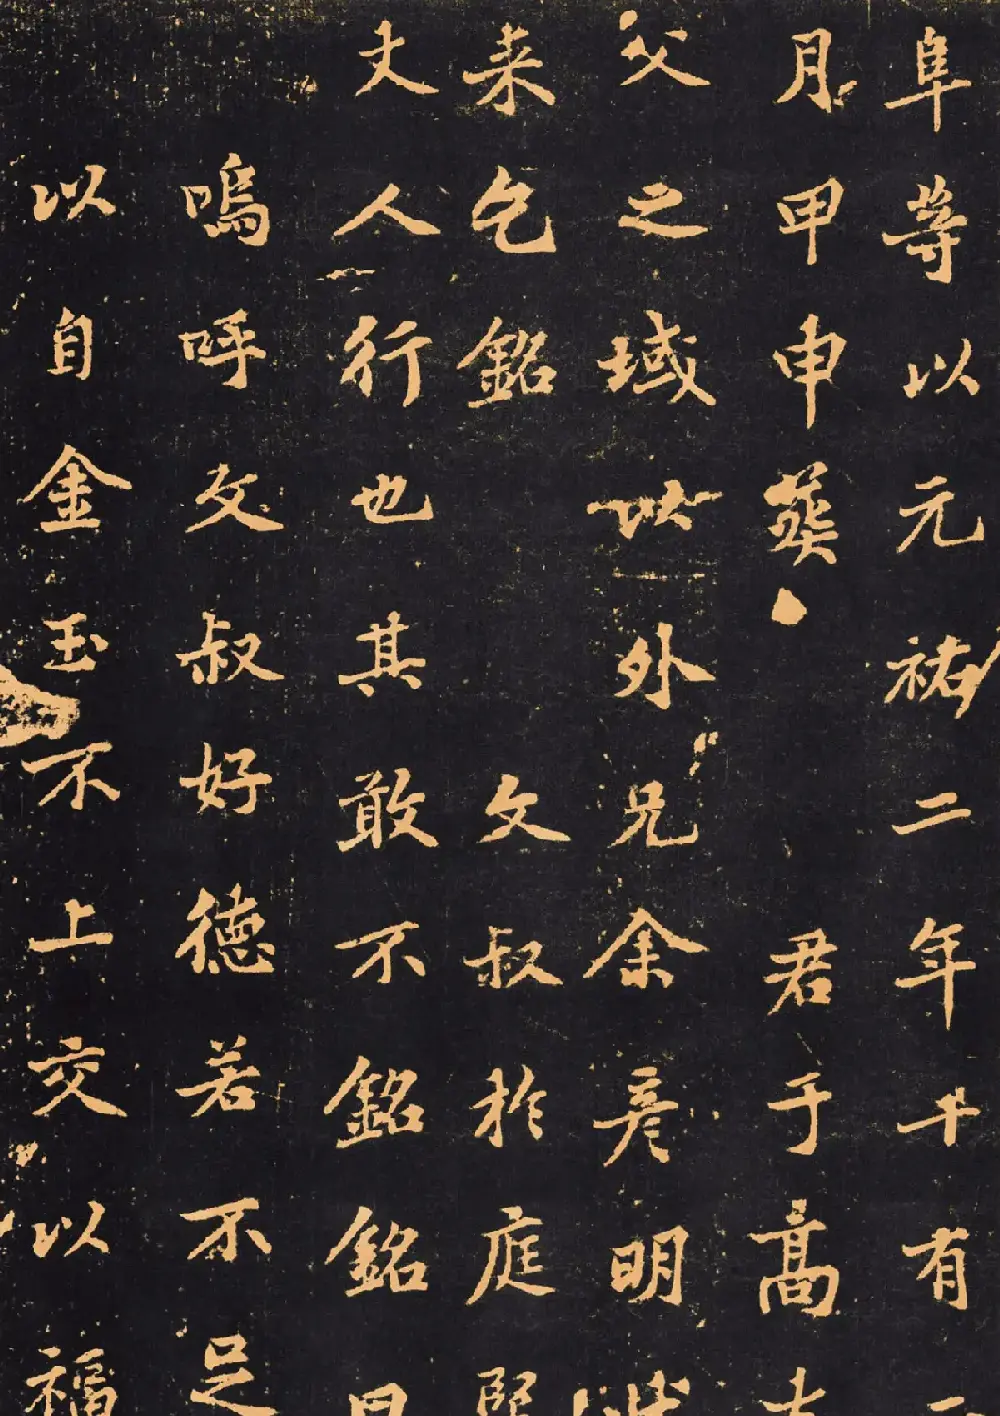 阜等以元祐二年十有二
月甲申葬君于高
父之域以外兄余彦明
来乞銘文叔於庭堅
丈人行也其敢不銘銘曰
嗚呼文叔好德若不足
以自金玉不上交以福